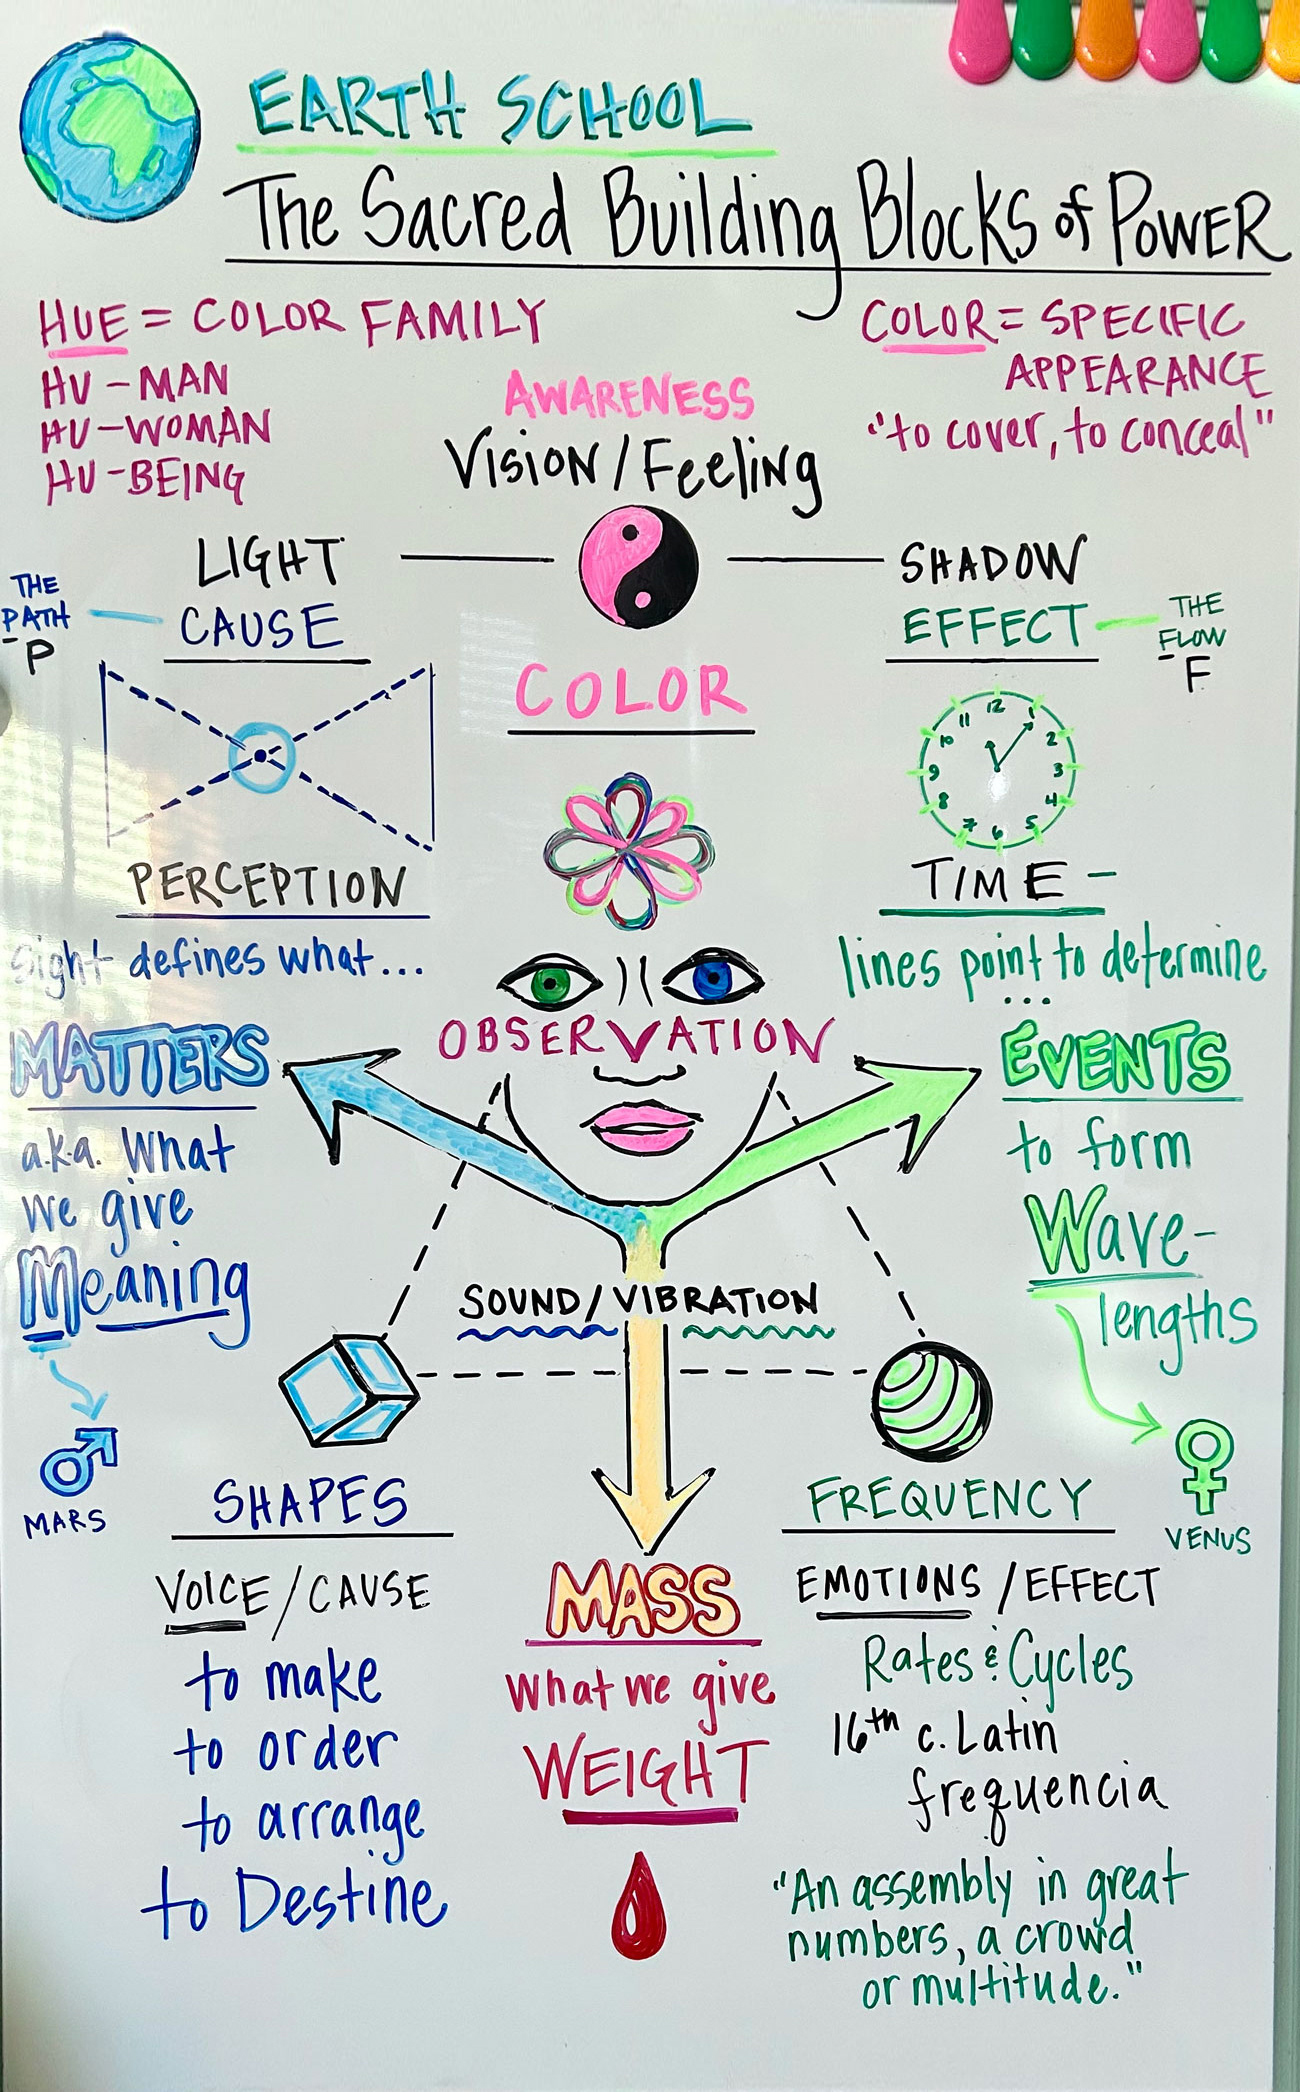 EARTH SCHOOL
The Sacred Building Blocks of POWER
HUE = COLOR FAMILY
HU - MAN
HU - WOMAN
HU - BEING
COLOR = SPECIFIC
APPEARANCE
"to cover, to conceal"
AWARENESS
Vision / Feeling
LIGHT
CAUSE
THE
PATH
- P
SHADOW
EFFECT
THE
FLOW
- F
COLOR
12
1
2
3
4
5
6
7
8
9
10
11
PERCEPTION
sight defines what...
TIME -
lines point to determine
...
OBSERVATION
MATTERS
a.k.a. What
we give
Meaning
MARS
EVENTS
to form
Wave-
lengths
VENUS
SOUND / VIBRATION
SHAPES
VOICE / CAUSE
to make
to order
to arrange
to Destine
MASS
what we give
WEIGHT
FREQUENCY
EMOTIONS / EFFECT
Rates & Cycles
16th c. Latin
frequencia
"An assembly in great
numbers, a crowd
or multitude."